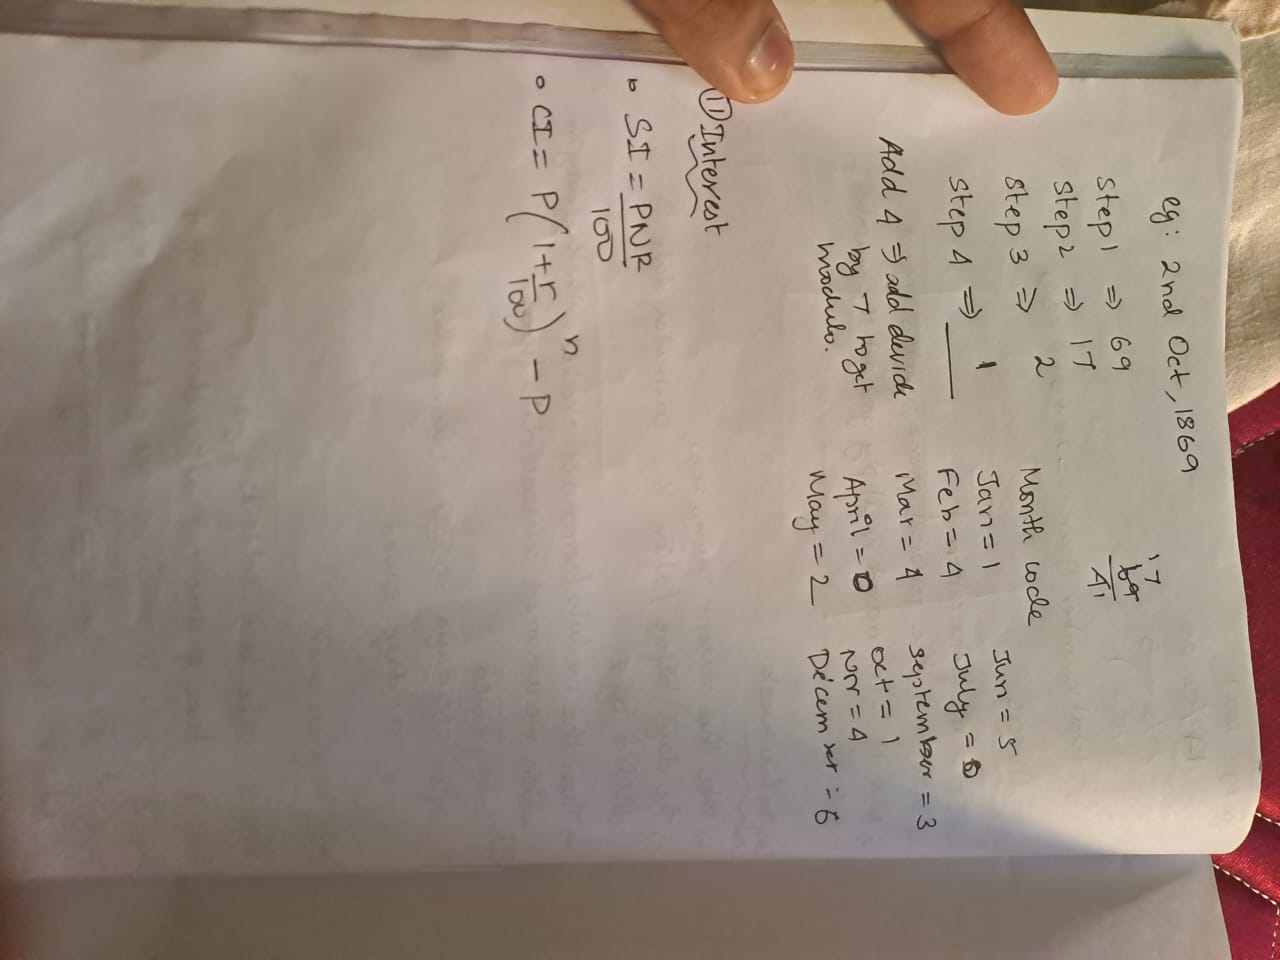 eg: 2nd Oct, 1869
Step1 ⇒ 69
Step2 ⇒ 17
Step3 ⇒ 2
Step4 ⇒ 1
Add 4 ⇒ add devide
by 7 to get
modulo.
17
69
4
Month code
Jan = 1
Feb = 4
Mar = 4
April = 0
May = 2
Jun = 5
July = 0
September = 3
Oct = 1
Nov = 4
December = 6
11 Interest
• SI = PNR/100
• CI = P(1+r/100)^n − P